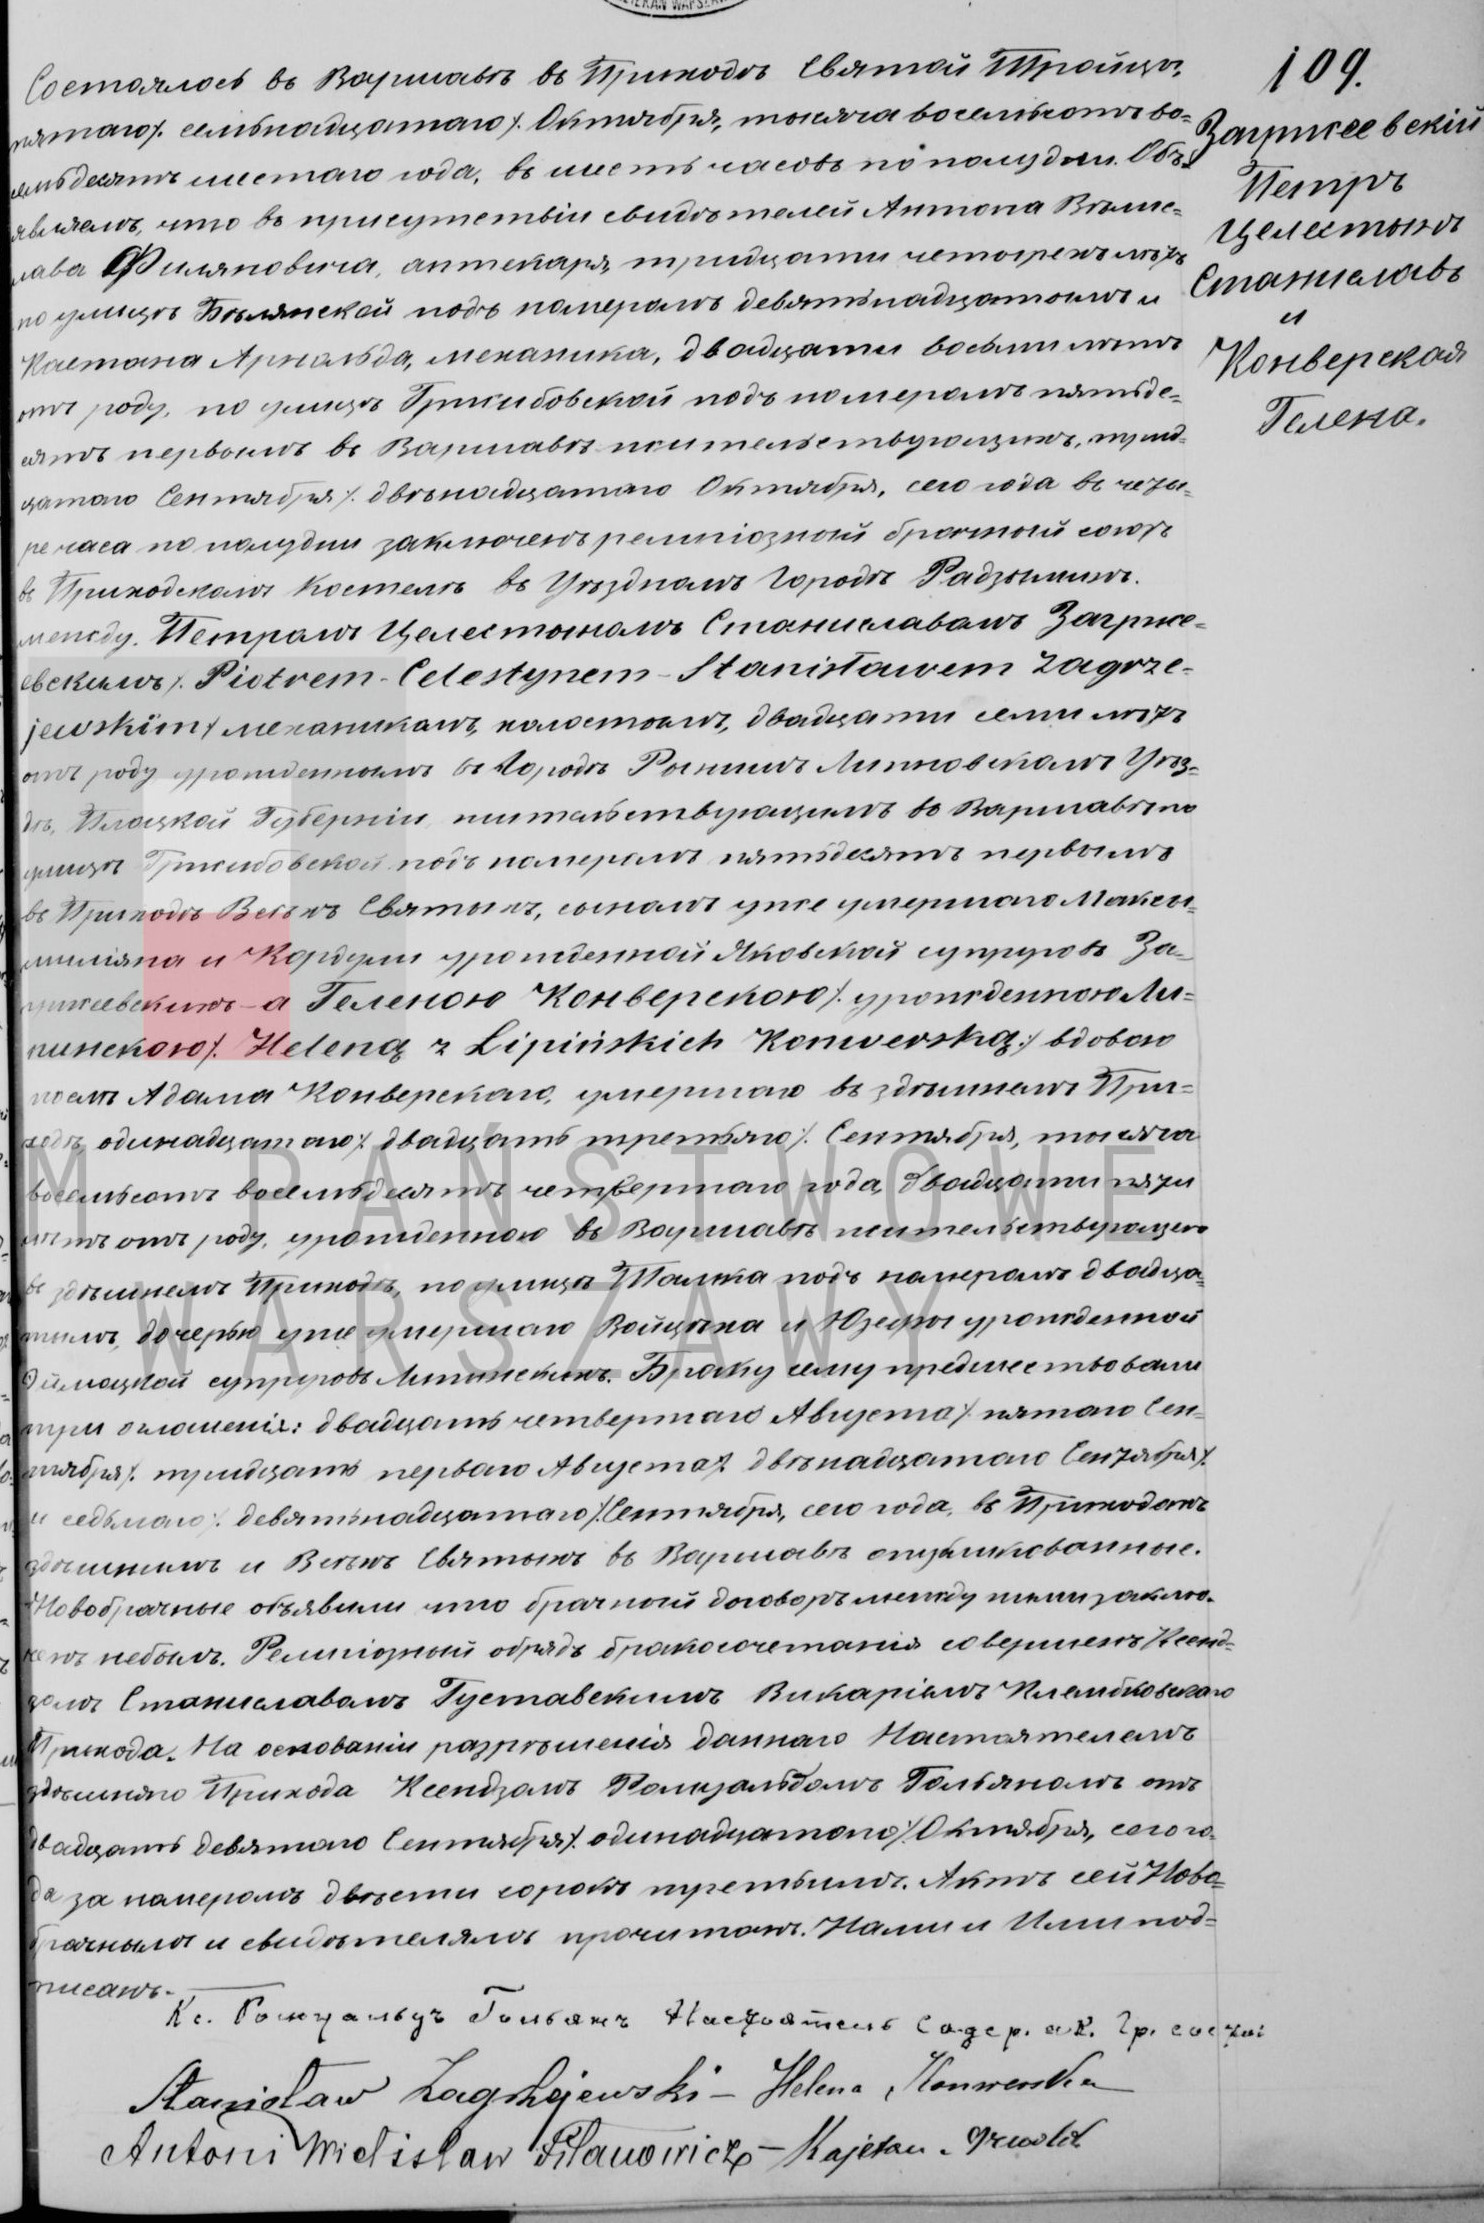 109.
Загржеевскій
Петръ
Целестынъ
Станиславъ
и
Конверская
Гелена.
Состоялось въ Варшавѣ въ Приходѣ Святой Тройцы,
пятаго /. семьнадцатаго /. Октября, тысяча восемьсотъ во-
семьдесятъ шестаго года, въ шесть часовъ по полудни. Объ-
являемъ, что въ присутствіи свидѣтелей Антона
Филяновича, аптекаря, тридцати четырехъ лѣтъ
по улицѣ Бѣлянской подъ номеромъ девятьнадцатымъ и
Каетана Арнольда, механика, двадцати восьми лѣтъ
отъ роду, по улицѣ Гржибовской подъ номеромъ пятьде-
сятъ первымъ въ Варшавѣ жительствующихъ, трид-
цатаго Сентября /. двѣнадцатаго Октября, сего года въ четы-
ре часа по полудни заключенъ религіозный брачный союзъ
въ Приходскомъ Костелѣ въ Уѣздномъ Городѣ Радзыминѣ.
между. Петромъ Целестыномъ Станиславомъ Загрже-
евскимъ /. Piotrem-Celestynem-Stanisławem Zagrze-
jewskim / механикомъ, холостымъ, двадцати семи лѣтъ
отъ роду урожденнымъ въ Городѣ Рыпинѣ Липновскомъ Уѣз-
дѣ, Плоцкой Губерніи жительствующимъ въ Варшавѣ по
улицѣ Гржибовской подъ номеромъ пятьдесятъ первымъ
въ Приходѣ Всѣхъ Святыхъ, сыномъ уже умершаго Макси-
миліяна и Кордули урожденной Яковской супруговъ За-
гржеевскихъ-а Геленою Конверскою /. урожденною Ли-
пинскою /. Heleną z Lipińskich Konwerską / вдовою
послѣ Адама Конверскаго, умершаго въ здѣшнемъ При-
ходѣ, одинадцатаго /. двадцать третьяго /. Сентября, тысяча
восемьсотъ восемьдесятъ четвертаго года, двадцати пяти
лѣтъ отъ роду, урожденною въ Варшавѣ жительствующею
въ здѣшнемъ Приходѣ, по улицѣ Тамка подъ номеромъ двадца-
тымъ, дочерью уже умершаго Войцѣха и Юзефы урожденной
супруговъ Липинскихъ. Браку сему предшествовали
три оглашенія: двадцать четвертаго Августа /. пятаго Сен-
тября /. тридцать перваго Августа /. двѣнадцатаго Сентября /.
и седьмаго /. девятьнадцатаго /. Сентября, сего года, въ Приходахъ
здѣшнимъ и Всѣхъ Святыхъ въ Варшавѣ опубликованные.
Новобрачные объявили что брачный договоръ между ними заклю-
ченъ небылъ. Религіозный обрядъ бракосочетанія совершенъ Ксенд-
зомъ Станиславомъ Густавскимъ Викаріемъ Клембковскаго
Прихода. На основаніи разрѣшенія даннаго Настоятелемъ
здѣшняго Прихода Ксендзомъ Ромуальдомъ Гольяномъ отъ
двадцать девятаго Сентября /. одинадцатаго /. Октября, сего го-
да за номеромъ двѣсти сорокъ третьимъ. Актъ сей Ново-
брачнымъ и свидѣтелямъ прочитанъ. Нами и Ими под-
писанъ.-
Кс. Ромуальдъ Гольянъ Настоятель Содер. ак. Гр. сост.
Stanisław Zagrzejewski - Helena Konwerska
Antoni Wiecisław Filanowicz - Kajetan Arnold
M PAŃSTWOWE
WARSZAWY